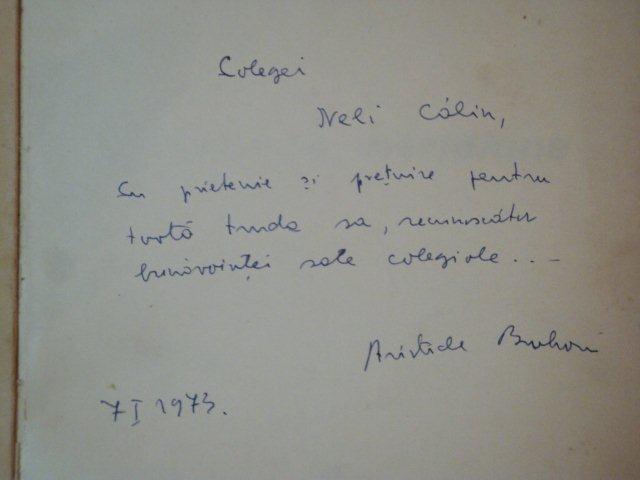 Colegei
Neli Călin,
Cu prietenie și prețuire pentru
toată truda sa, recunoscător
bunăvoinței sale colegiale...
Aristide Buhoiu
7 I 1973.